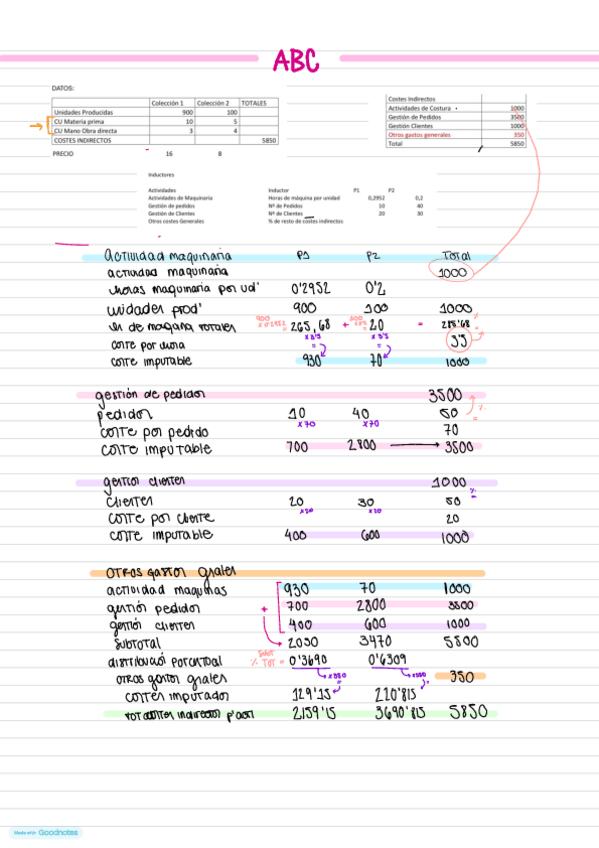 ABC
DATOS:
Colección 1 Colección 2 TOTALES
Unidades Producidas 900 100
CU Materia prima 10 5
CU Mano Obra directa 3 4
COSTES INDIRECTOS 5850
PRECIO 16 8
Costes Indirectos
Actividades de Costura 1000
Gestión de Pedidos 3500
Gestión Clientes 1000
Otros gastos generales 350
Total 5850
Inductores
Actividades Inductor P1 P2
Actividades de Maquinaria Horas de máquina por unidad 0,2952 0,2
Gestión de pedidos Nº de Pedidos 10 40
Gestión de Clientes Nº de Clientes 20 30
Otros costes Generales % de resto de costes indirectos
Actividad maquinaria P1 P2 Total
actividad maquinaria 1000
horas maquinaria por ud' 0'2952 0'2
unidades prod' 900 100 1000
de maquina totales 900 x 0'2952 = 265,68 + 20 = 285'68
coste por hora x3'5 = x3'5 = 3'5
coste imputable 930 70 1000
gestión de pedidos 3500
pedidos 10 40 50
x70 x70
coste por pedido 70
coste imputable 700 2800 3500
gestion clientes 1000
clientes 20 30 50
x20 x20
coste por cliente 20
coste imputable 400 600 1000
OTROS GASTOS Grales
actividad maquinas 930 70 1000
gestión pedidos + 700 2800 3500
gestión clientes 400 600 1000
Subtotal 2030 3470 5500
distribució porcentual = 0'3690 0'6309
otros gastos grales x350 x350 350
costes imputados 129'15 220'815
2159'15 3690'815 5850
Made with Goodnotes